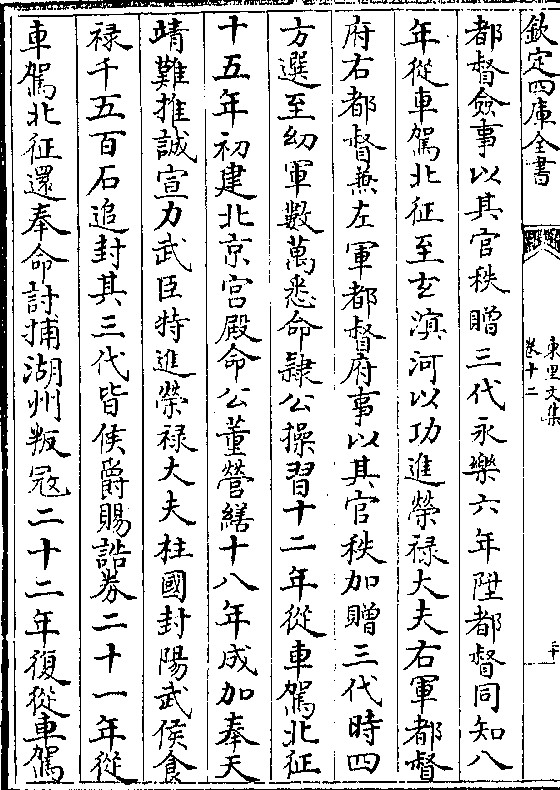 欽定四庫全書
東里文集
卷十二
都督僉事以其官秩贈三代永樂六年陞都督同知八
年從車駕北征至玄濵河以功進榮禄大夫右軍都督
府右都督兼左軍都督府事以其官秩加贈三代時四
方選至幼軍數萬悉命隷公操習十二年從車駕北征
十五年初建北京宫殿命公董營繕十八年成加奉天
靖難推誠宣力武臣特進榮禄大夫柱國封陽武侯食
禄千五百石追封其三代皆侯爵賜誥券二十一年從
車駕北征還奉命討捕湖州叛冦二十二年復從車駕